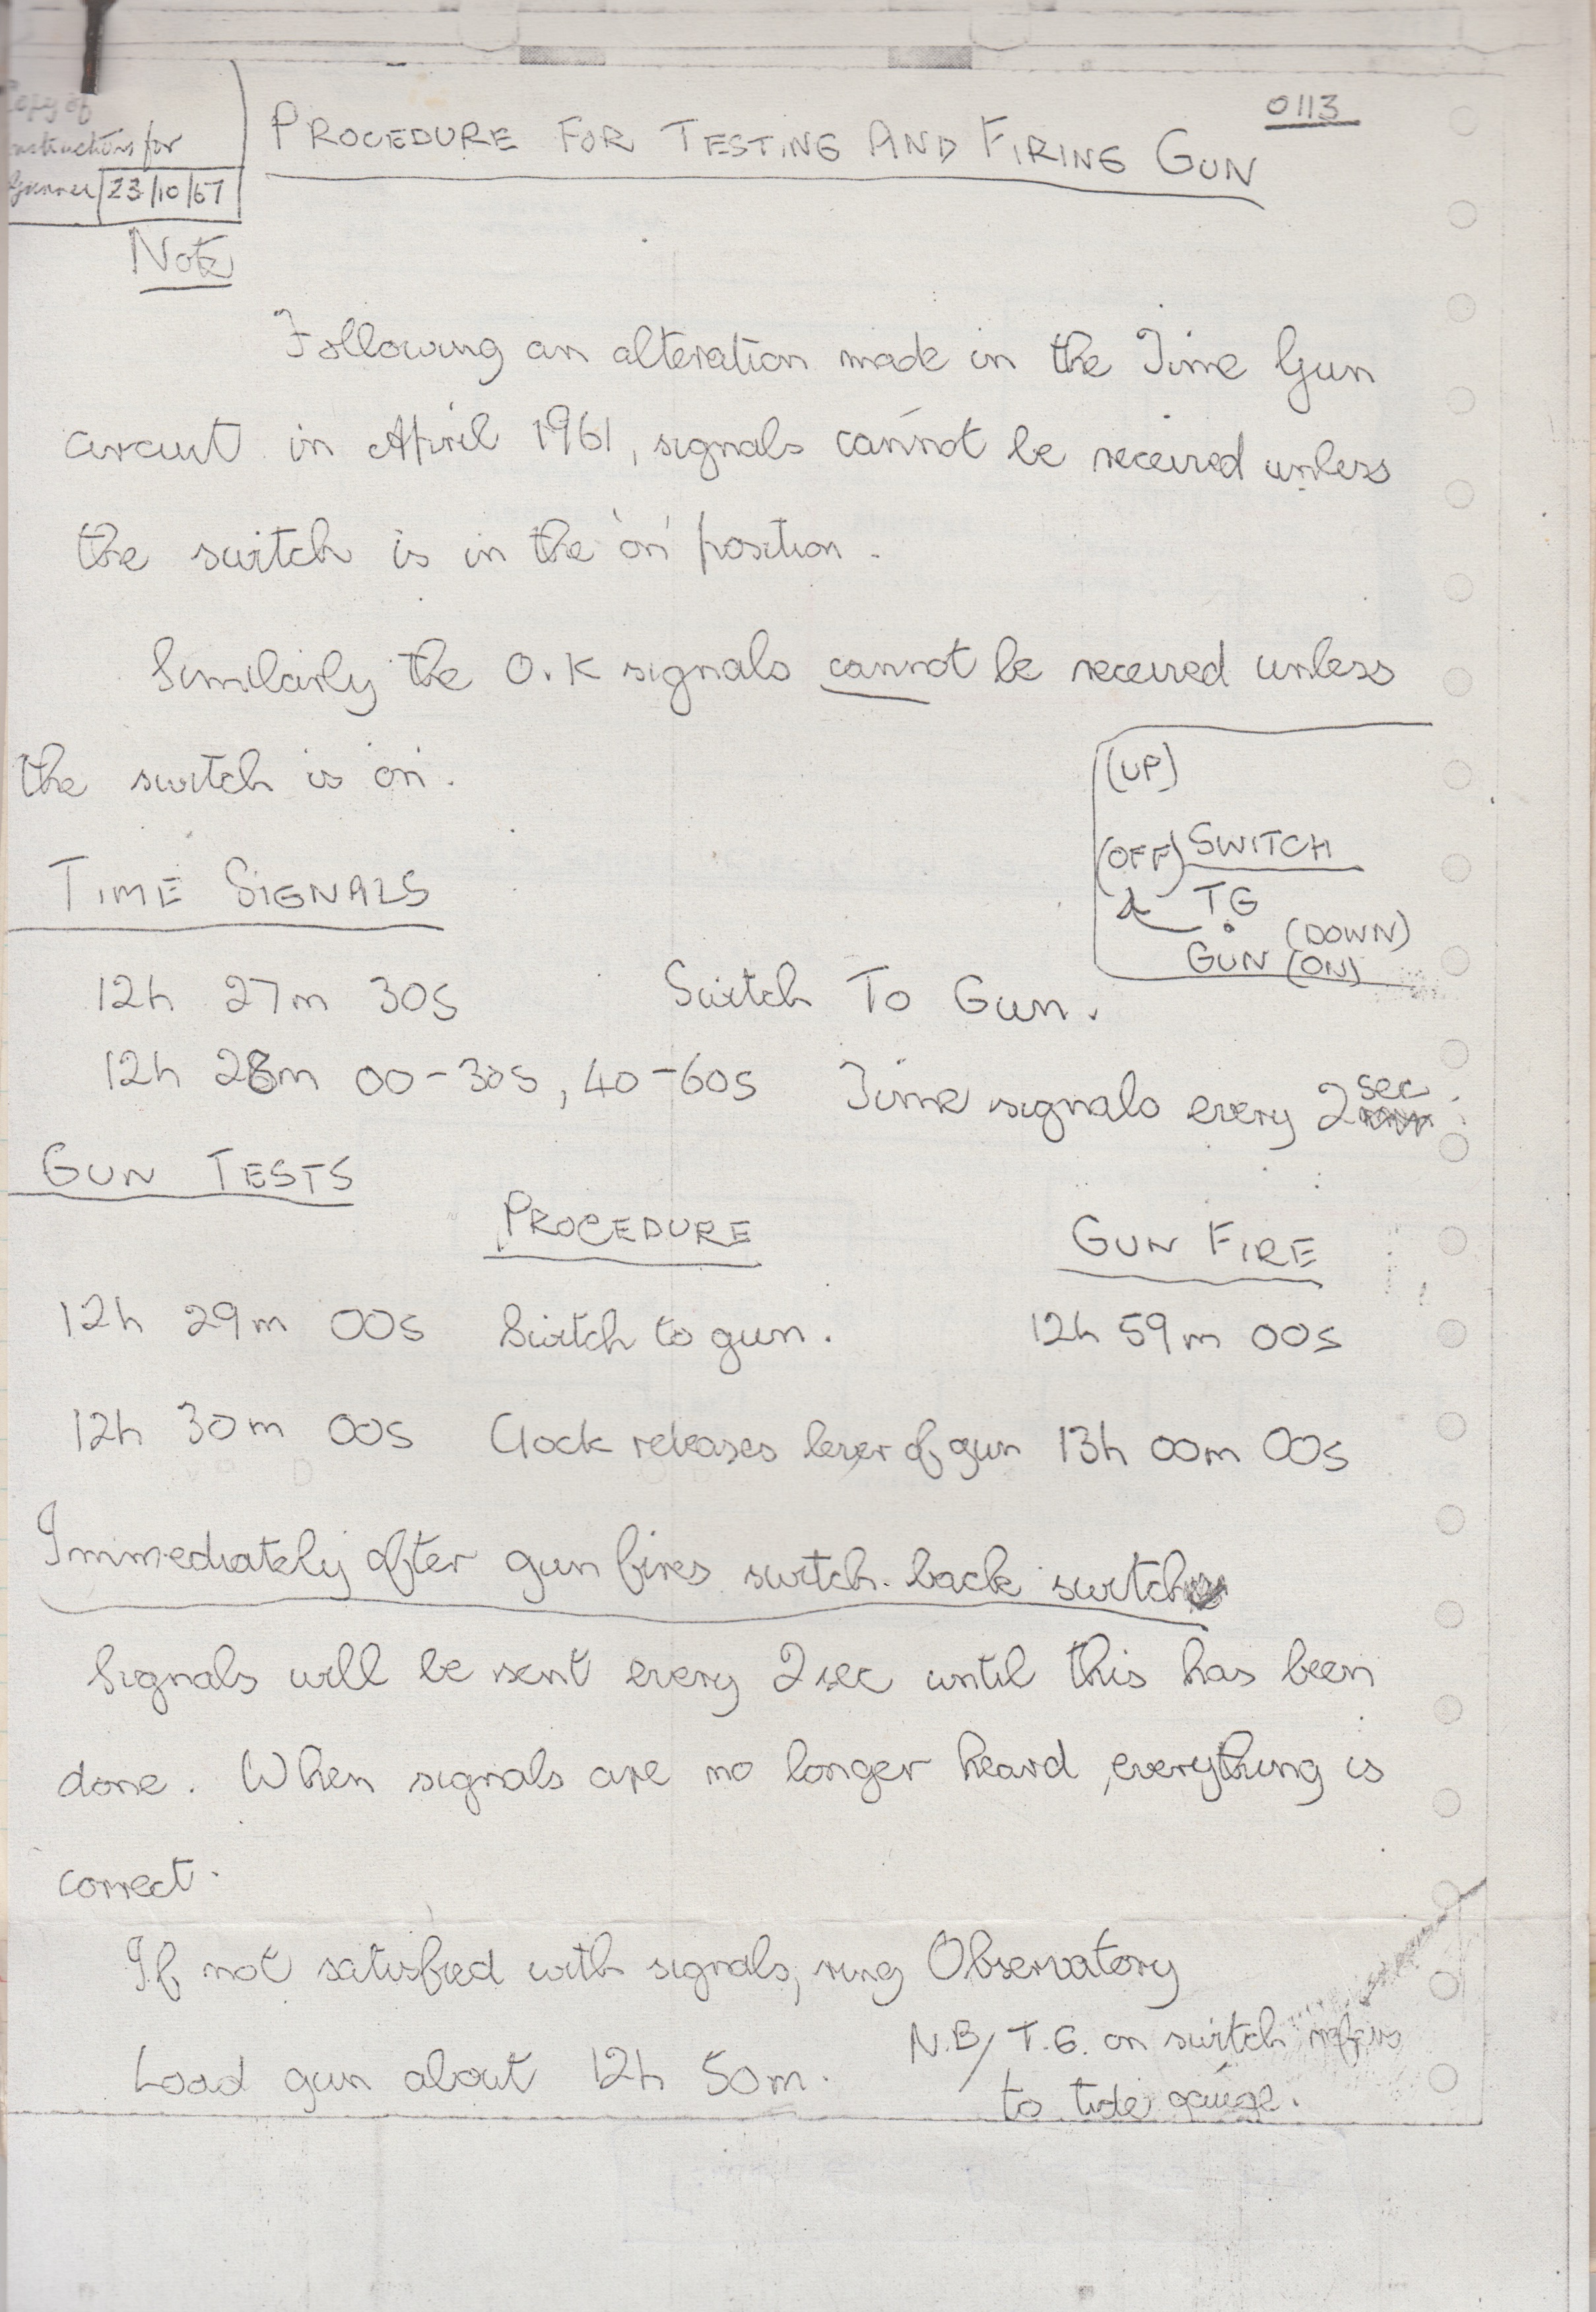 0113
Copy of
instructions for
Gunner 23/10/67
PROCEDURE FOR TESTING AND FIRING GUN
Note
Following an alteration made in the Time Gun
circuit in April 1961, signals cannot be received unless
the switch is in the 'on' position.
Similarly the O.K signals cannot be received unless
the switch is 'on'.
(UP)
(OFF) SWITCH
TG
(DOWN)
GUN (ON)
TIME SIGNALS
12h 27m 30s Switch To Gun.
12h 28m 00-30s, 40-60s Time signals every 2 sec
GUN TESTS
PROCEDURE GUN FIRE
12h 29m 00s Switch to gun. 12h 59m 00s
12h 30m 00s Clock releases lever of gun 13h 00m 00s
Immediately after gun fires switch back switch
Signals will be sent every 2 sec until this has been
done. When signals are no longer heard, everything is
correct.
If not satisfied with signals, ring Observatory
Load gun about 12h 50m.
N.B/ T.G. on switch refers
to tide gauge.